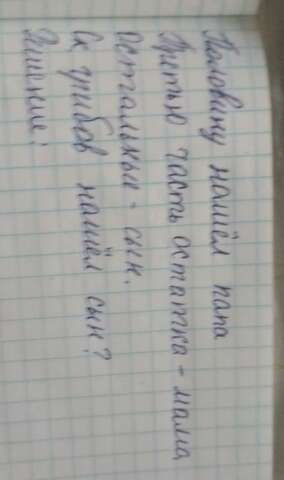 Половину нашёл папа
Третью часть остатка - мама
Остальные - сын.
Ск. грибов нашёл сын?
Решение: